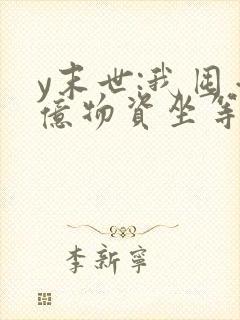 y末世:我囤
億物資坐等
李新寧